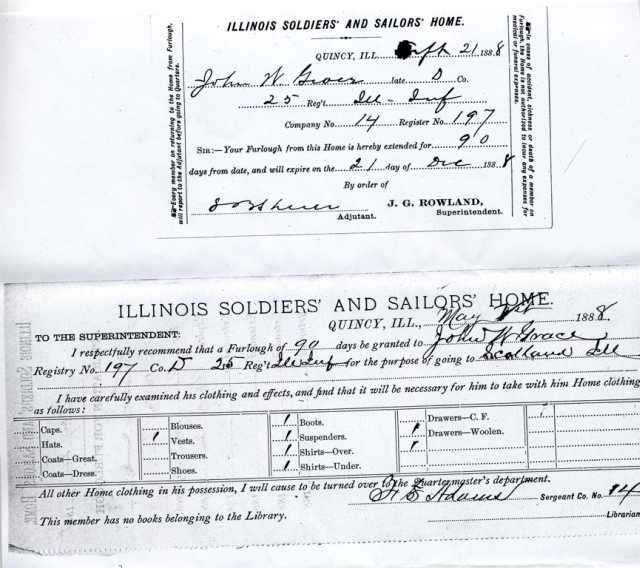 ILLINOIS SOLDIERS' AND SAILORS' HOME.
QUINCY, ILL. Sept 21 1888
John W Grace late D Co.
25 Reg't Ill - Inf
Company No. 14 Register No. 197
SIR:—Your Furlough from this Home is hereby extended for 90
days from date, and will expire on the 21 day of Dec 1888
By order of
J. G. ROWLAND,
Adjutant. Superintendent.
Every member on returning to the Home from Furlough, will report to the Adjutant before going to Quarters.
In cases of accident, sickness or death of a member on Furlough, the Home is not authorized to incur any expenses for medical or funeral expenses.
ILLINOIS SOLDIERS' AND SAILORS' HOME.
QUINCY, ILL., May 1888.
TO THE SUPERINTENDENT:
I respectfully recommend that a Furlough of 90 days be granted to John W Grace
Registry No. 197 Co. D 25 Reg't Ill Inf for the purpose of going to Scotland Ill
I have carefully examined his clothing and effects, and find that it will be necessary for him to take with him Home clothing
as follows:
Caps. Blouses. 1 Boots. Drawers—C. F.
Hats. 1 Vests. 1 Suspenders. 1 Drawers—Woolen.
Coats—Great. Trousers. 1 Shirts—Over.
Coats—Dress. Shoes. 1 Shirts—Under.
All other Home clothing in his possession, I will cause to be turned over to the Quartermaster's department.
Adams Sergeant Co. No. 14
This member has no books belonging to the Library.
Librarian